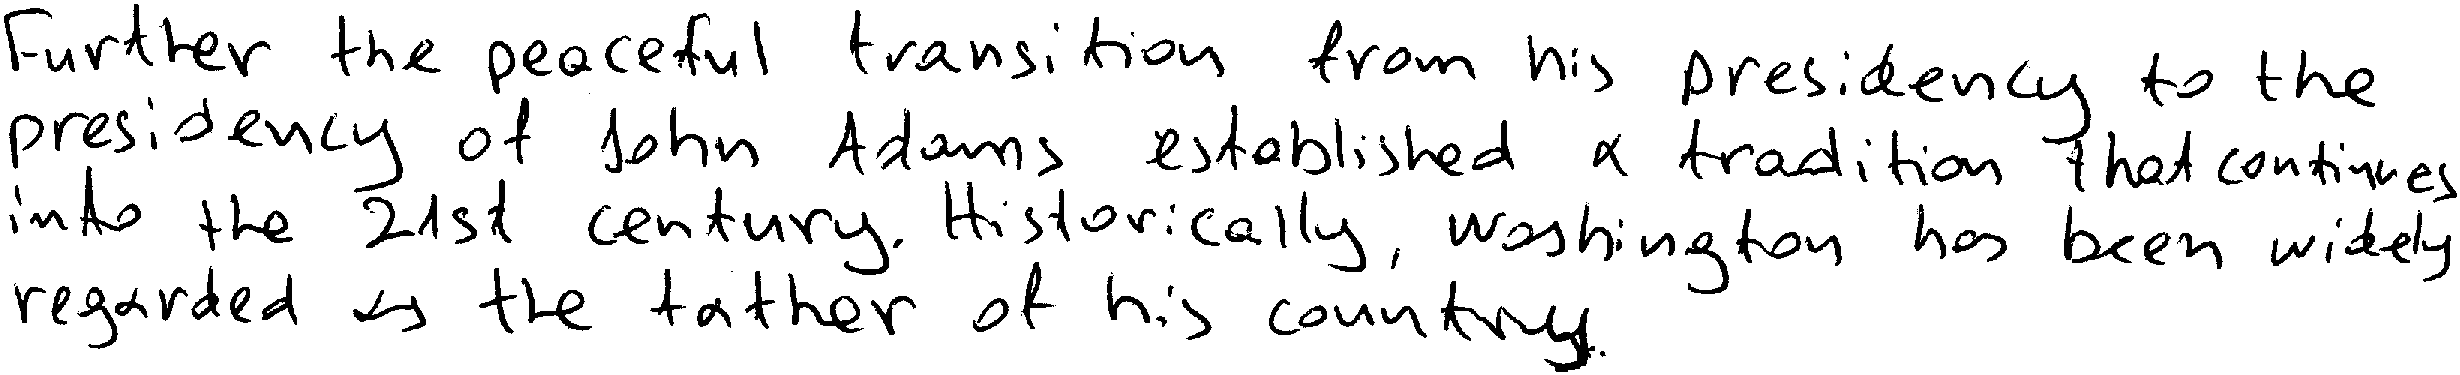 Further the peaceful transition from his presidency to the
presidency of John Adams established a tradition that continues
into the 21st century. Historically, Washington has been widely
regarded as the father of his country.